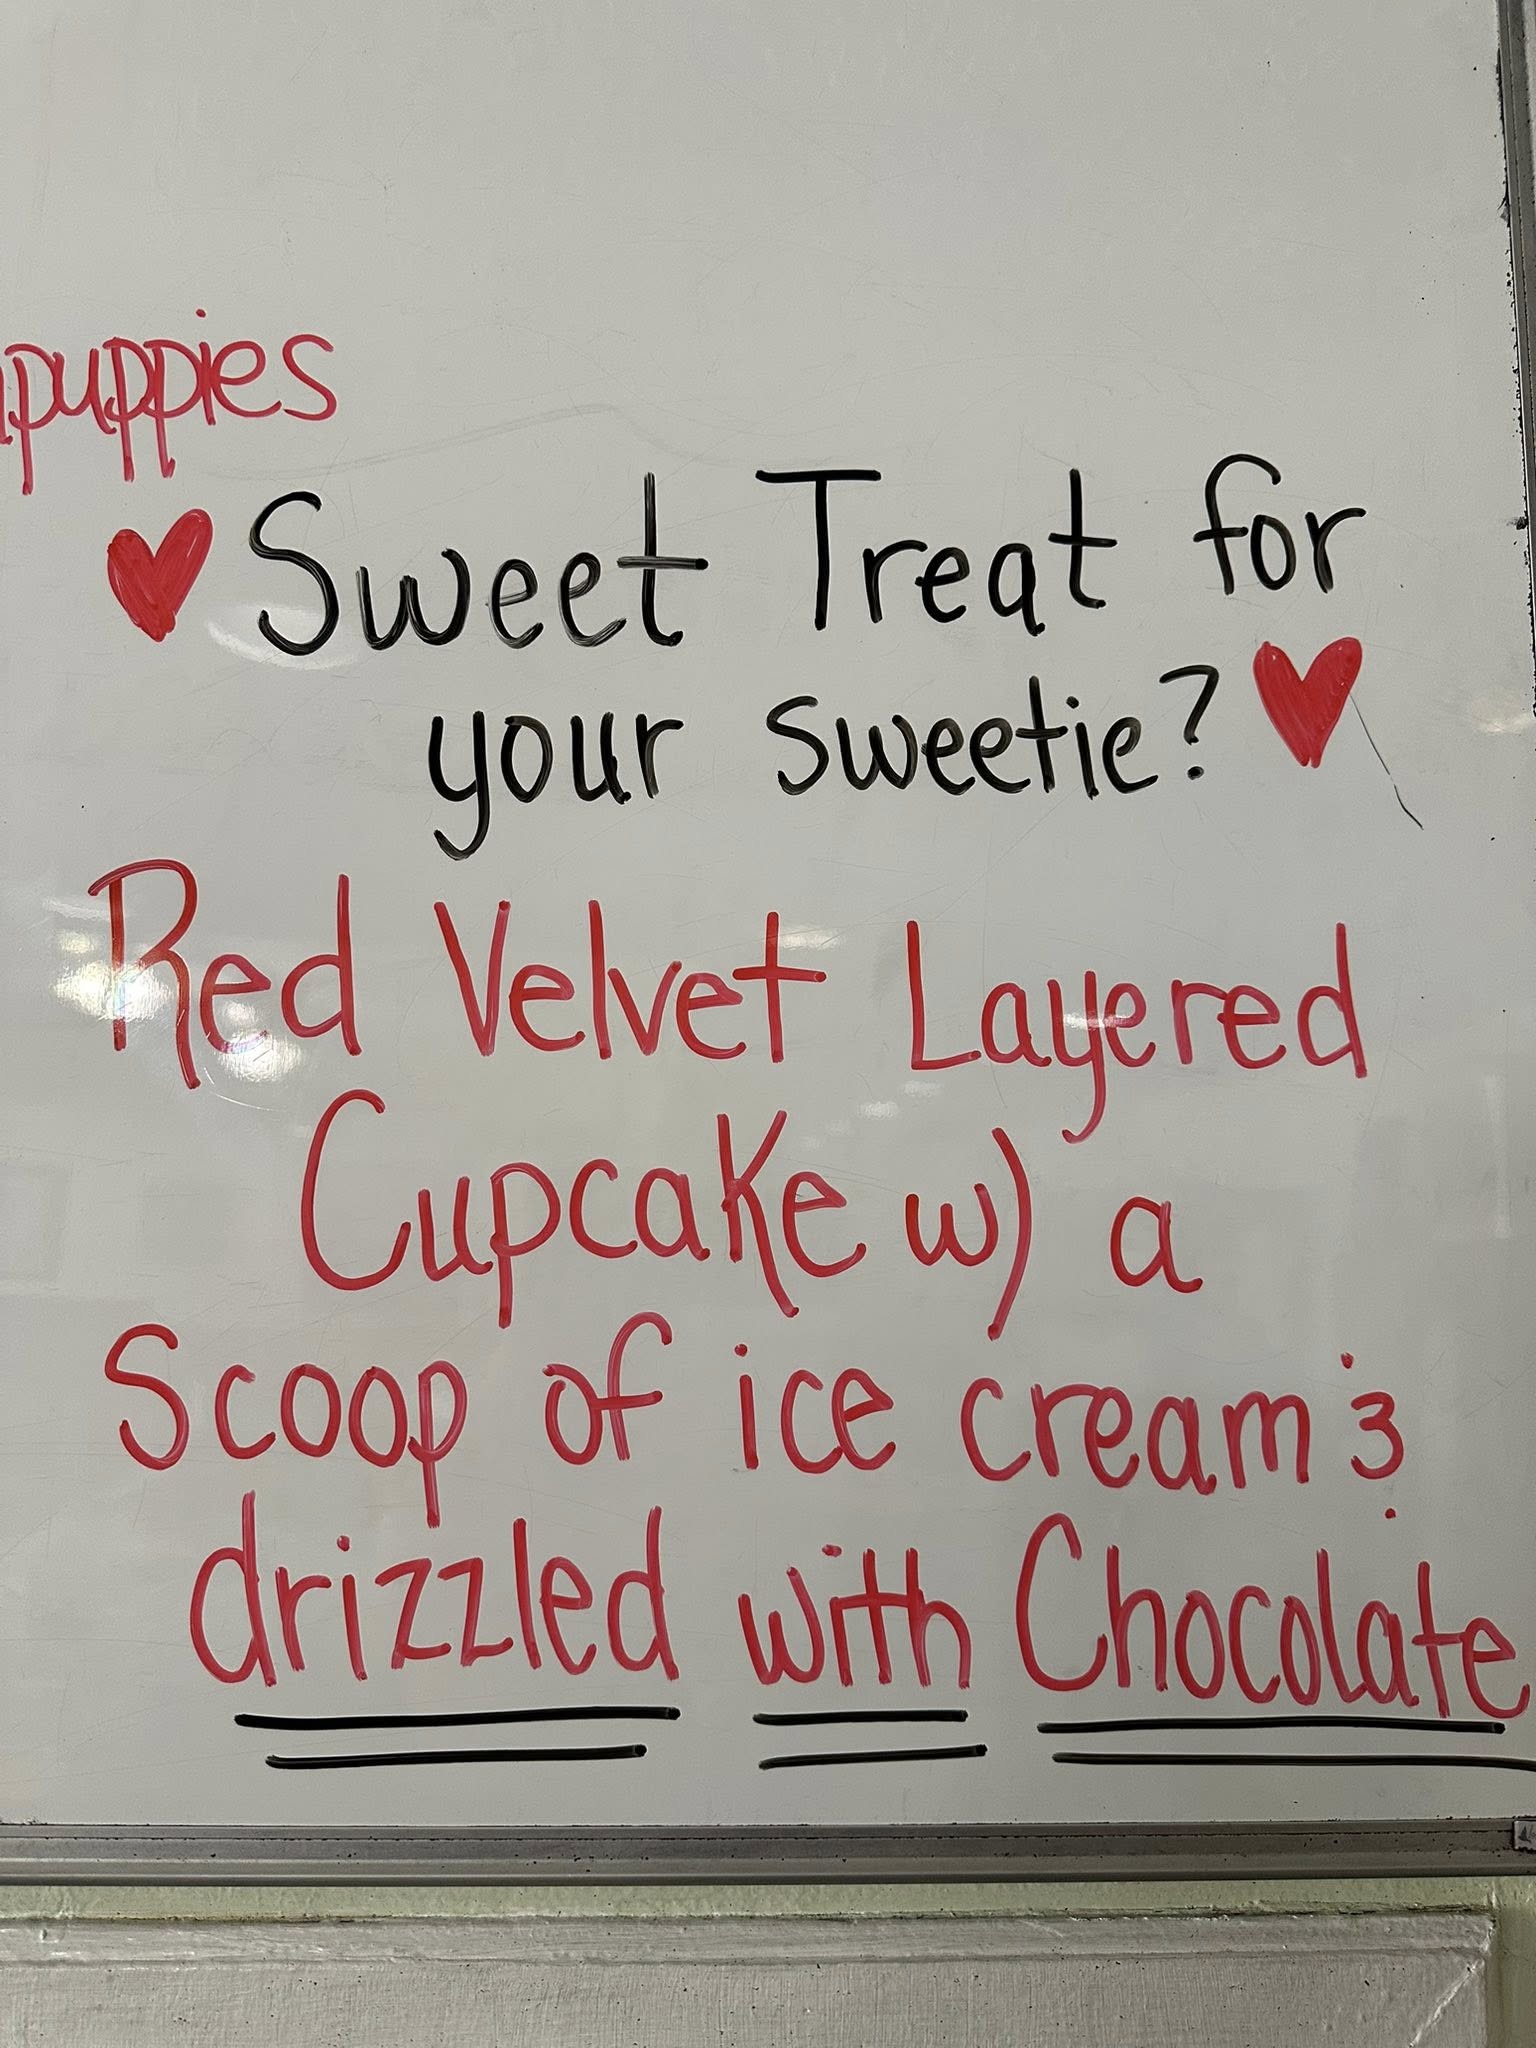 puppies
Sweet Treat for
your sweetie?
Red Velvet Layered
Cupcake w) a
Scoop of ice cream &
drizzled with Chocolate